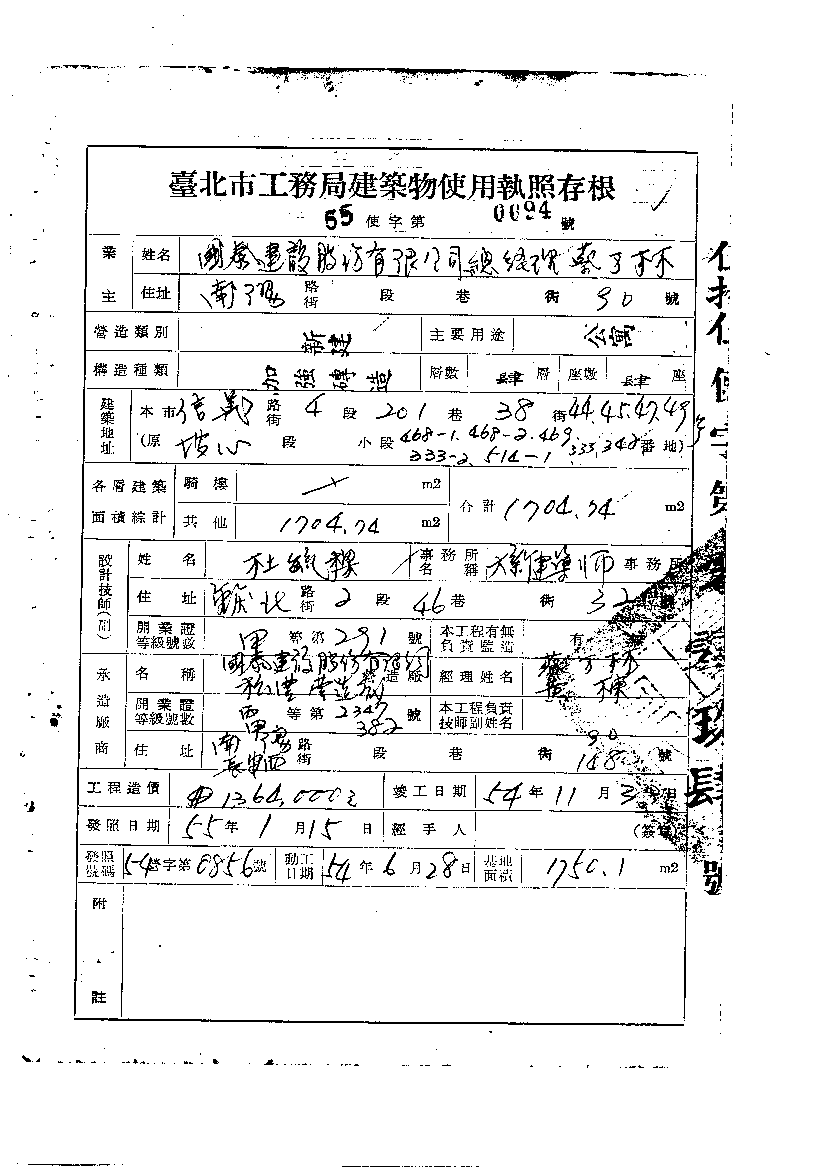 臺北市工務局建築物使用執照存根
55 使字第 0094 號
業主 姓名 國泰建設股份有限公司總經理蔡万林
住址 南陽 路街 段 巷 街 90 號
營造類別 新建 主要用途 公寓
構造種類 加強磚造 層數 肆 層 座數 肆 座
建築地址 本市 信義 路街 4 段 201 巷 38 街 44.45.47.49 號
(原 坡心 段 小段 468-1.468-2.469. 333.342 番地)
333-2. 514-1
各層建築面積綜計 騎樓 m2 合計 1704.74 m2
其他 1704.74 m2
設計技師(副) 姓名 杜 事務所名稱 建築師 事務所
住址 重慶北 路街 2 段 46 巷 街 32 號
開業證等級號數 甲 等第 291 號 本工程有無負責監造 有
承造廠商 名稱 國泰建設股份有限公司 營造廠 經理姓名 蔡万林
營造廠 黃 棟
開業證等級號數 甲 等第 2347 號 本工程負責技師副姓名
382
住址 南陽 路街 段 巷 街 90 號
長安西 148
工程造價 1364,000 竣工日期 54 年 11 月 日
發照日期 55 年 1 月 15 日 經手人 (簽章)
發照號碼 54 營字第 0856 號 動工日期 54 年 6 月 28 日 基地面積 1750.1 m2
附註
使字第
玖肆號